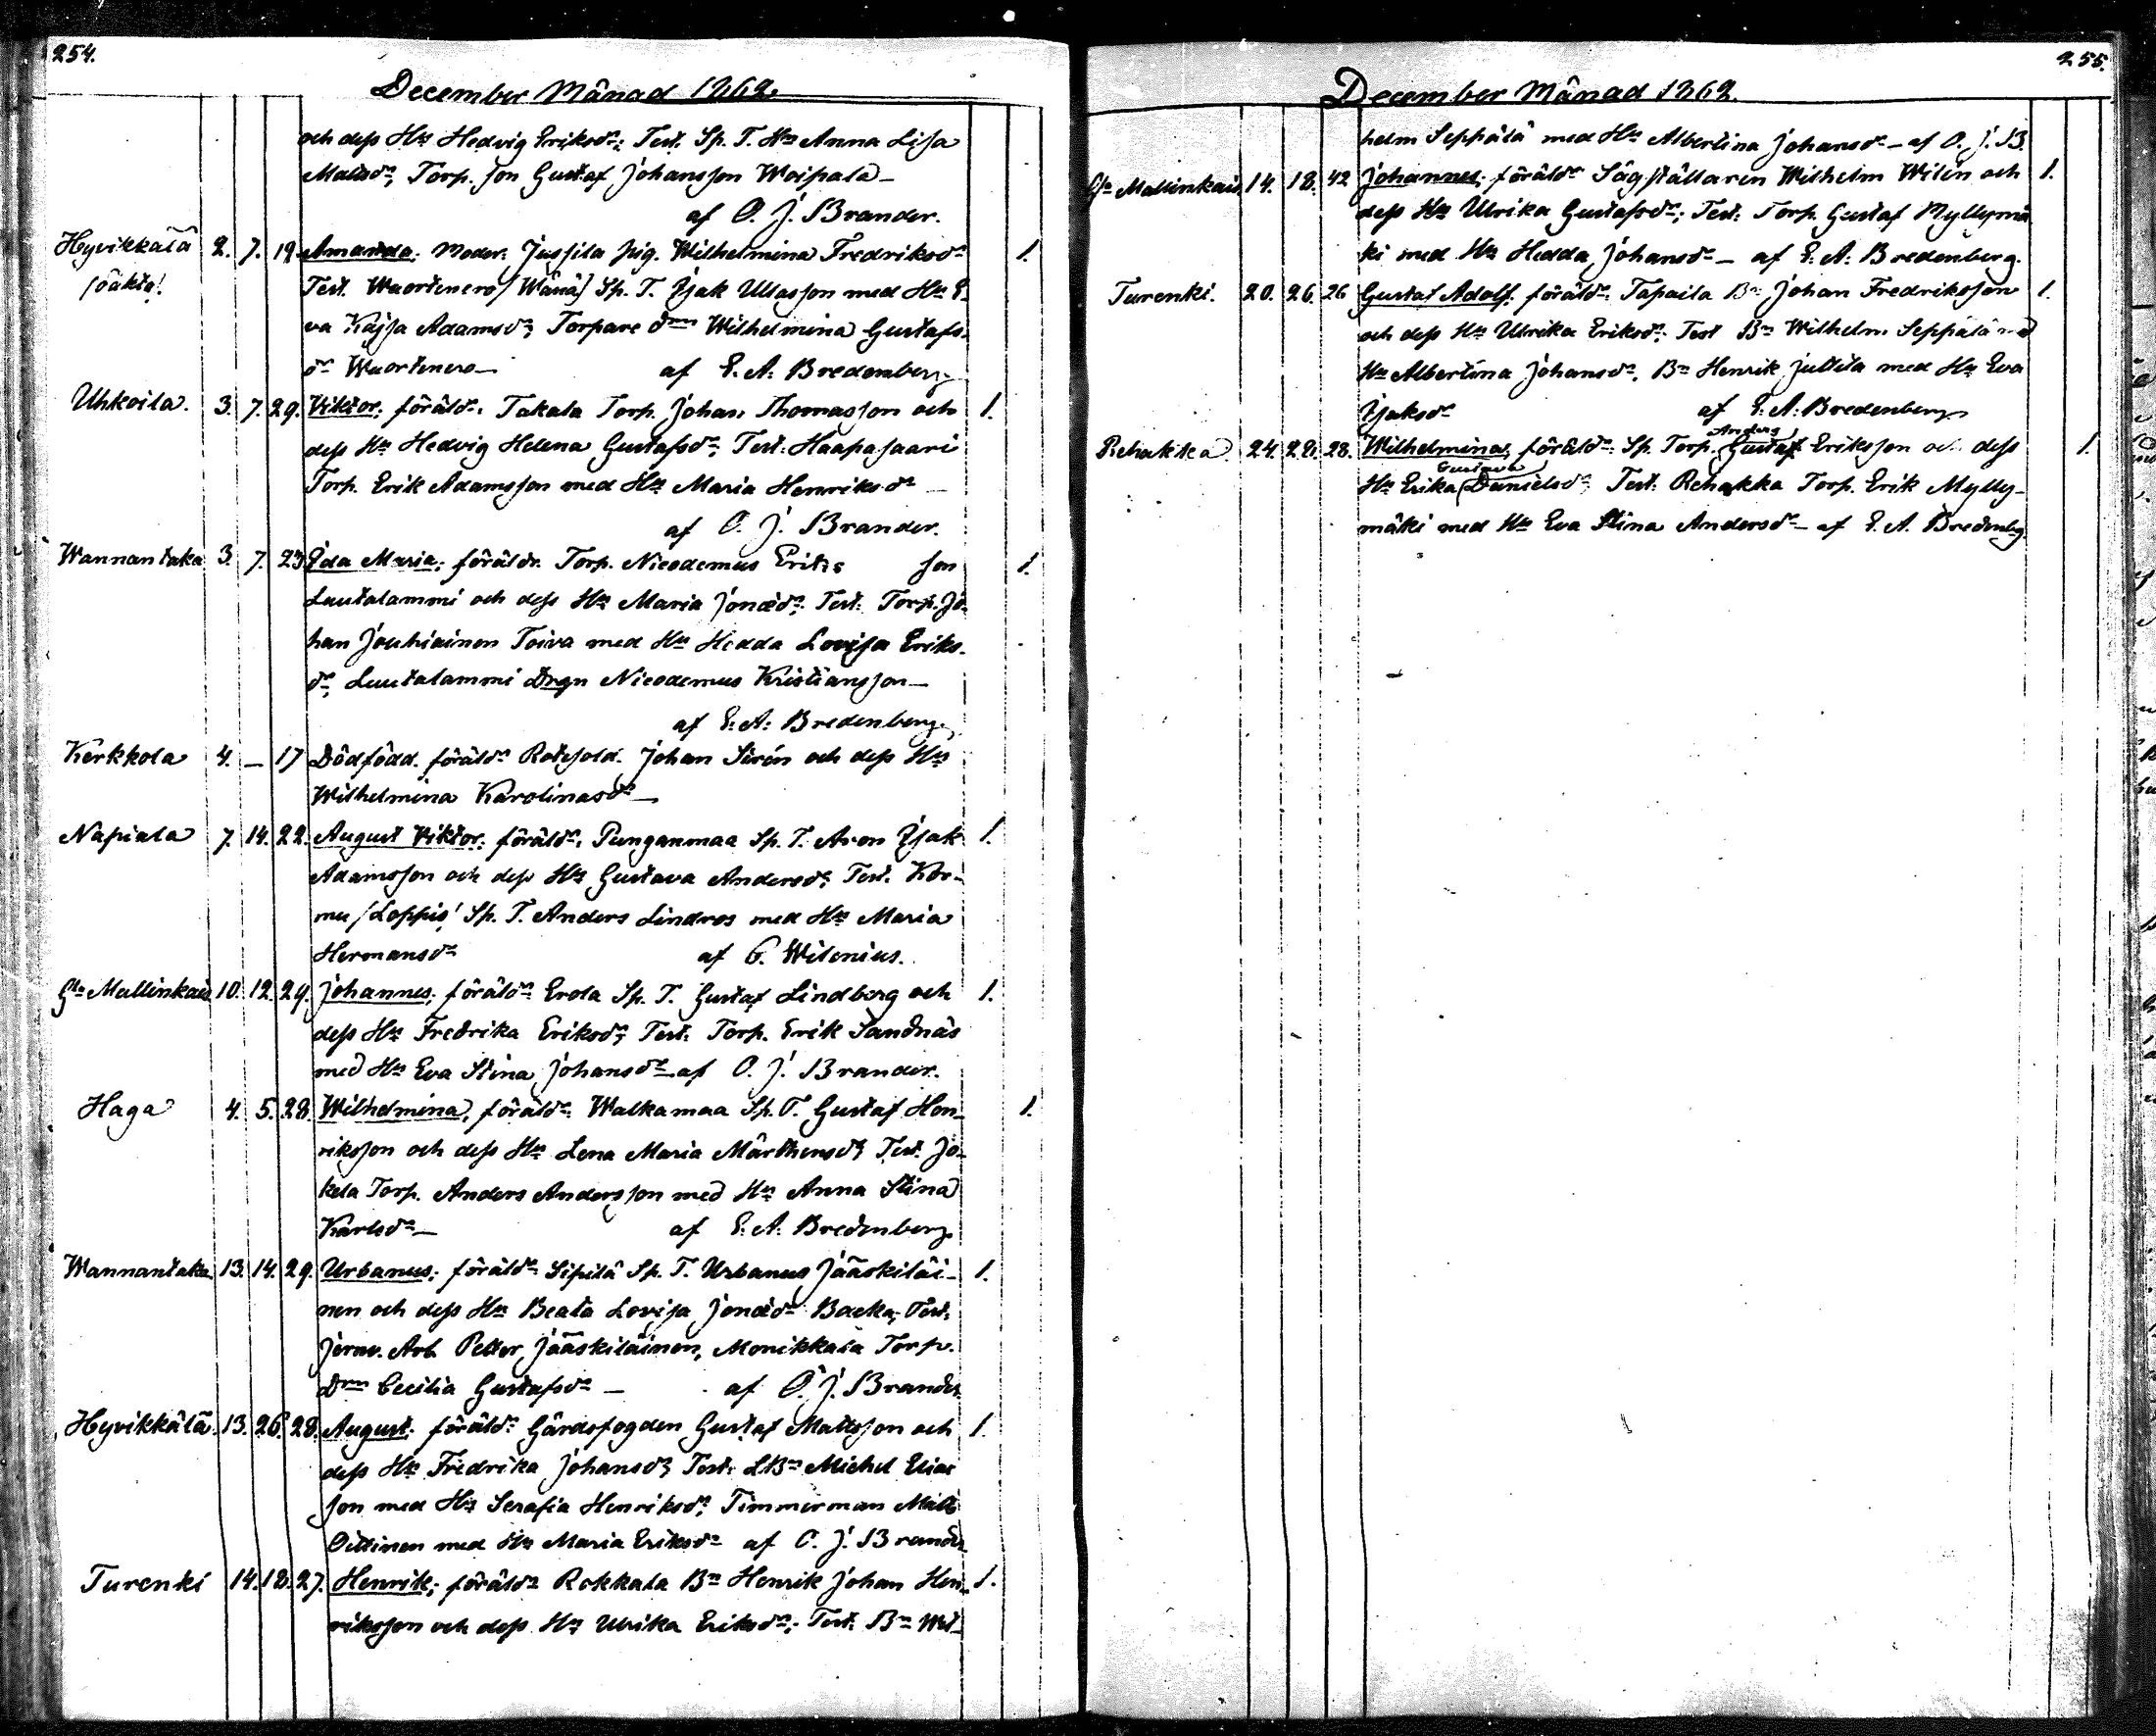 254.
December Månad 1862.
och dess Hu Hedvig Eriksdr; Test. Sp. T. Hn Anna Lisa
Matsdr, Torp. son Gustaf Johansson Woipala —
af O. J. Brander.
Hyvikkälä 2. 7. 19. Amanda; Moder: Jussila pig. Wilhelmina Fredriksdr 1.
/oäkta/ Test. Wuortenero /Wånå/ Sp. T. Isak Ullasson med Hu E-
va Kajsa Adamsdr, Torpare Drn Wilhelmina Gustafs-
dr Wuortenero — af E. A. Bredenberg
Uhkoila. 3. 7. 29. Viktor; föräldr: Takala Torp. Johan Thomasson och 1.
dess Hu Hedvig Helena Gustafsdr; Test: Haapasaari
Torp. Erik Adamsson med Hu Maria Henriksdr —
af O. J. Brander.
Wannantaka 3. 7. 23. Ida Maria; föräldr. Torp. Nicodemus Eriks son 1.
Luutalammi och dess Hu Maria Jonædr; Test: Torp. Jo-
han Jouhiainen Toiva med Hu Hedda Lovisa Eriks-
dr, Luutalammi Drgn Nicodemus Kristiansson —
af E. A. Bredenberg.
Kerkkola 4. — 17 Dödfödd. föräldr Rotesold. Johan Sirén och dess Hu
Wilhelmina Karolinasdr —
Napiala 7. 14. 22. August Viktor; föräldr: Punganmaa Sp. T. Aron Isak 1.
Adamsson och dess Hu Gustava Andersdr; Test. Kor-
mu /Loppis/ Sp. T. Anders Lindros med Hu Maria
Hermansdr af G. Wilenius.
Gla Mallinkais 10. 12. 29. Johannes; föräldr: Erola Sp. T. Gustaf Lindberg och 1.
dess Hu Fredrika Eriksdr; Test: Torp. Erik Sandnäs
med Hu Eva Stina Johansdr af O. J. Brander.
Haga 4. 5. 28. Wilhelmina, föräldr: Walkamaa Sp. T. Gustaf Hen- 1.
riksson och dess Hu Lena Maria Mårthensdr; Test. Jo-
kela Torp. Anders Andersson med Hu Anna Stina
Karlsdr — af E. A. Bredenberg
Wannantaka 13. 14. 29. Urbanus; föräldr: Sipilä Sp. T. Urbanus Jääskeläi- 1.
nen och dess Hu Beata Lovisa Jonædr Backa; Test:
Jernv. Arb. Petter Jääskiläinen, Monikkala Torp.
Drn Cecilia Gustafsdr — af O. J. Brander.
Hyvikkälä 13. 26. 28. August. föräldr: Gårdsfogden Gustaf Mattsson och 1.
dess Hu Fredrika Johansdr; Test: LBn Michel Elias
son med Hu Serafia Henriksdr; Timmerman Matts
Oittinen med Hu Maria Eriksdr af O. J. Brander
Turenki 14. 18. 27. Henrik; föräldr Rokkala Bn Henrik Johan Hen- 1.
riksson och dess Hu Ulrika Eriksdr; Test: Bn Wil-
255.
December Månad 1862.
helm Seppälä med Hu Albertina Johansdr — af O. J. B.
Gla Mallinkais 14. 18. 42 Johannes; föräldr Sågställaren Wilhelm Wilén och 1.
dess Hu Ulrika Gustafsdr; Test: Torp. Gustaf Myllymä
ki med Hu Hedda Johansdr — af E. A. Bredenberg.
Turenki. 20. 26. 26 Gustaf Adolf. föräldr: Tapaila Bn Johan Fredriksson 1.
och dess Hu Ulrika Eriksdr; Test Bn Wilhelm Seppälä med
Hu Albertina Johansdr, Bn Henrik Juttila med Hu Eva
Isaksdr af E. A. Bredenberg
Rehakka 24. 28. 28. Wilhelmina; föräldr: Sp. Torp. Gustaf Anders Eriksson och dess 1.
Hu Erika Gustava Danielsdr; Test: Rehakka Torp. Erik Mylly-
mäki med Hu Eva Stina Andersdr — af E. A. Bredenbg.